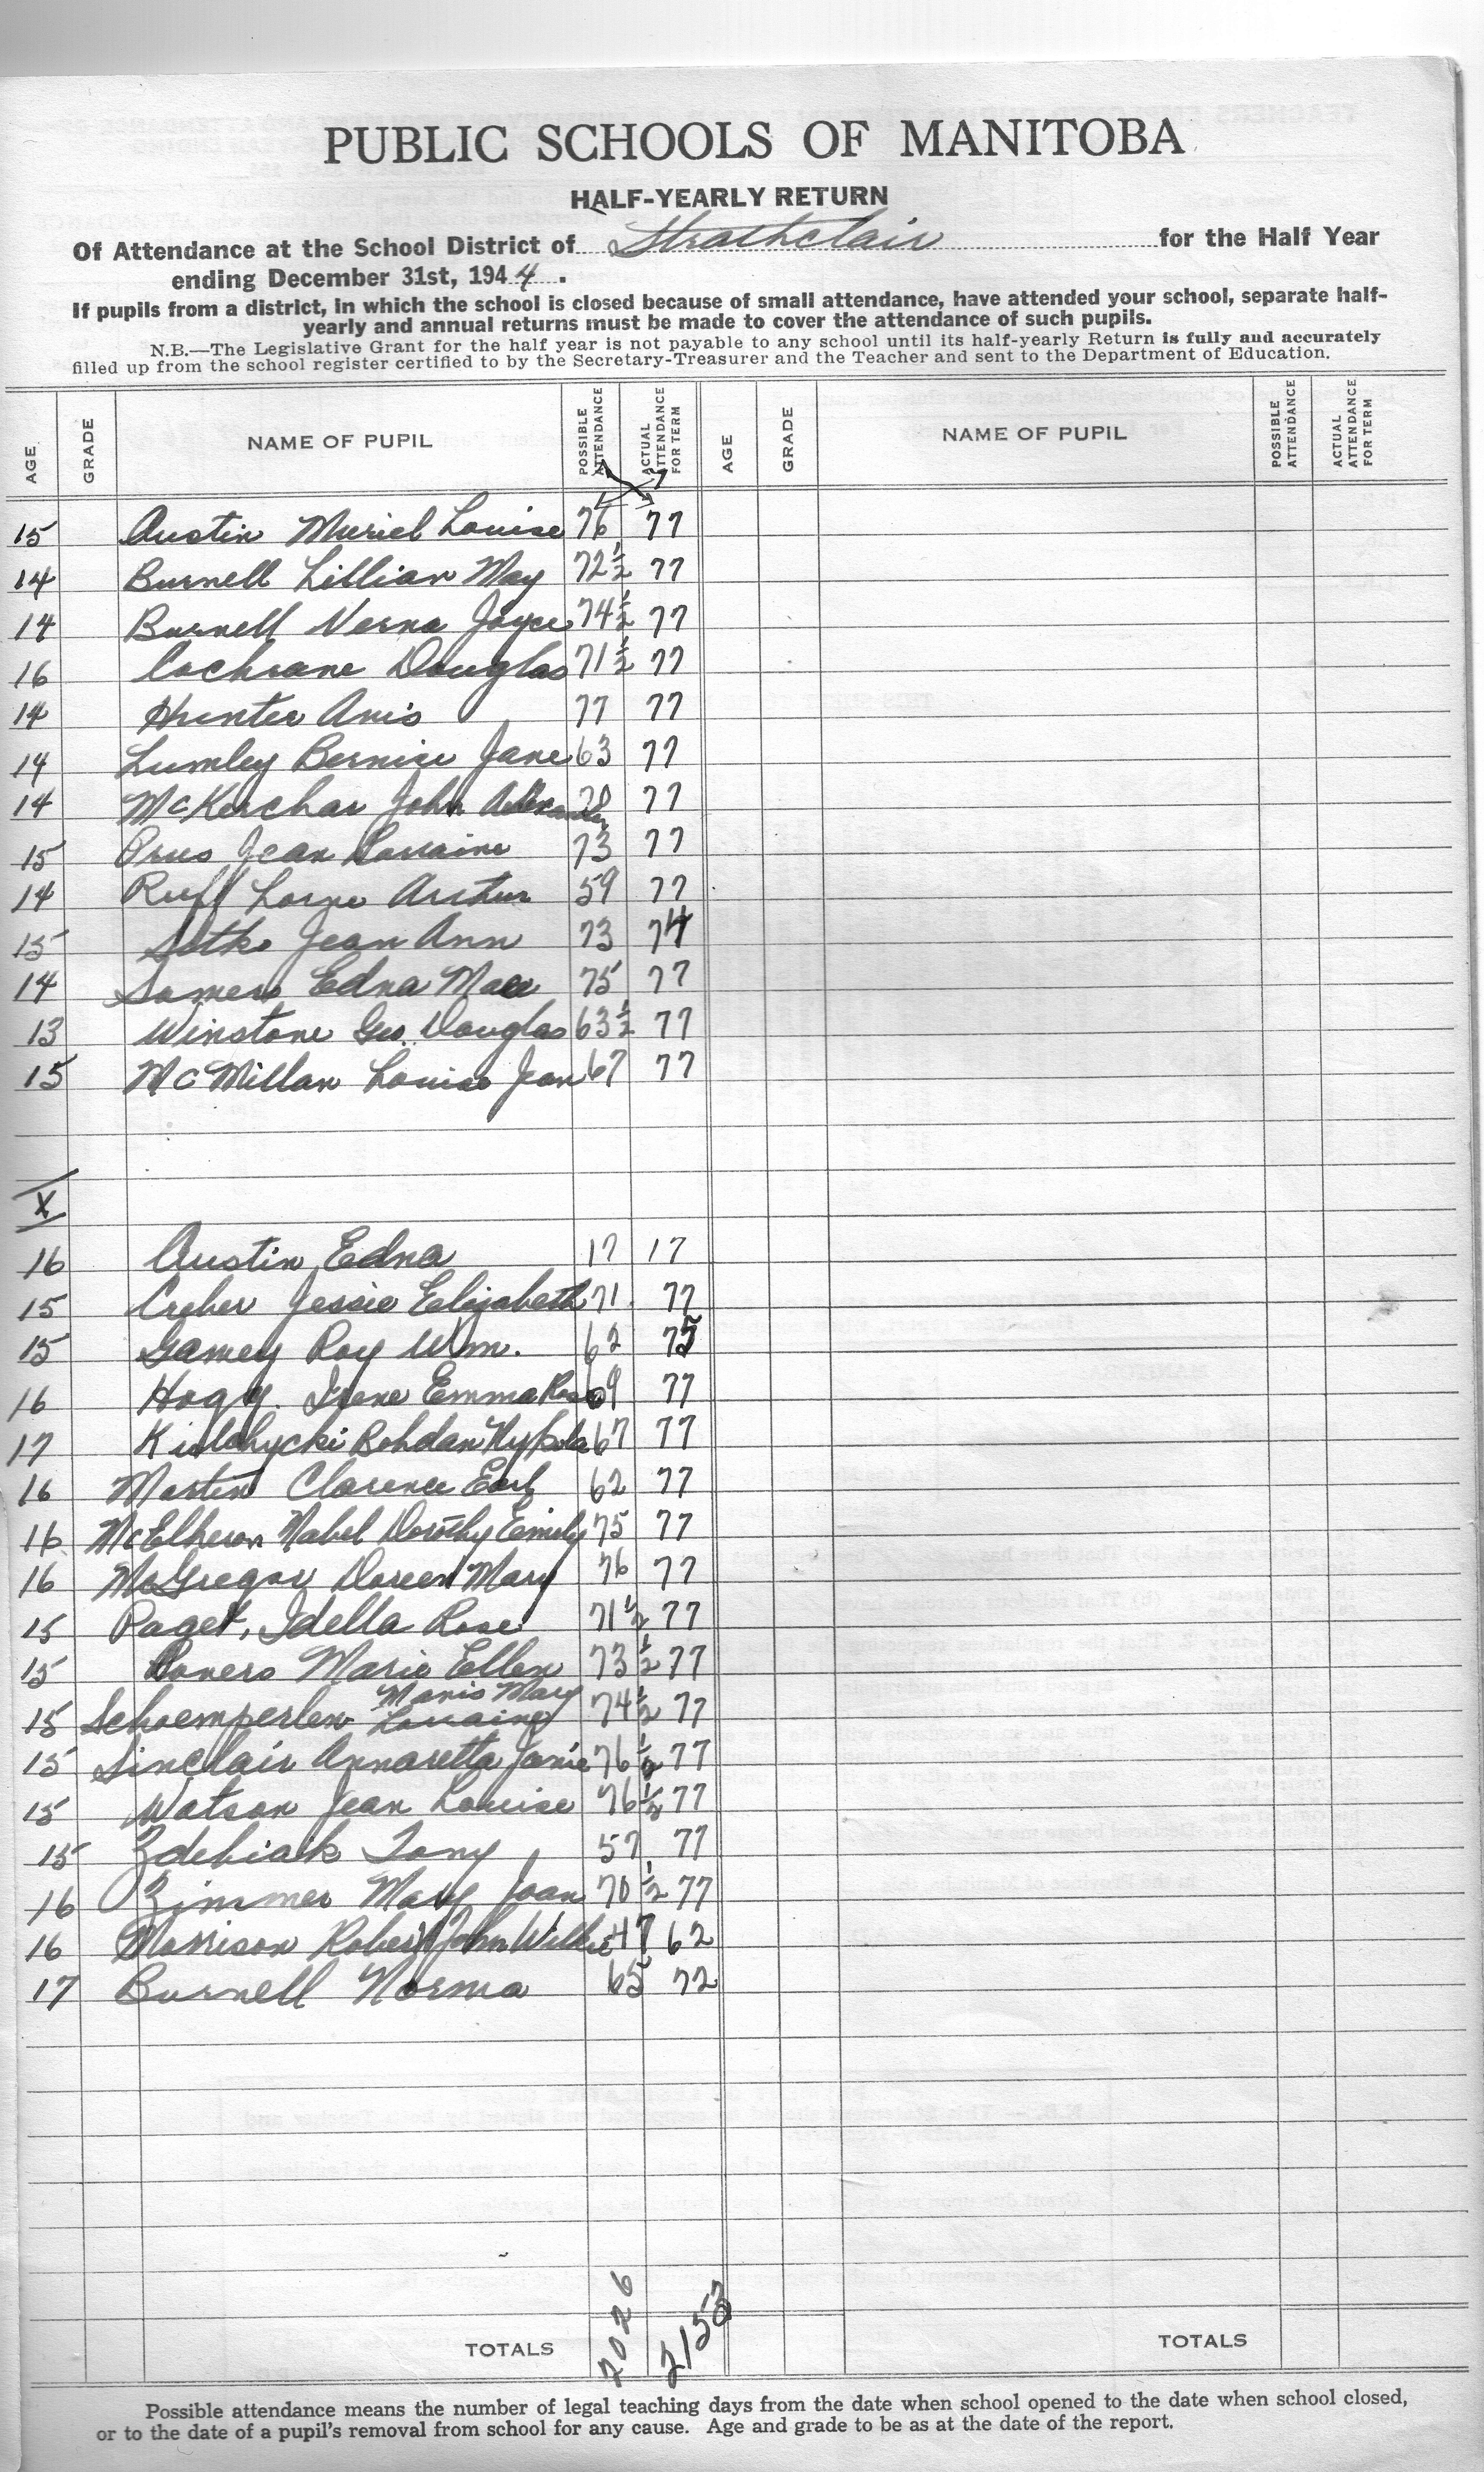 PUBLIC SCHOOLS OF MANITOBA
HALF-YEARLY RETURN
Of Attendance at the School District of Strathclair for the Half Year
ending December 31st, 1944.
If pupils from a district, in which the school is closed because of small attendance, have attended your school, separate half-
yearly and annual returns must be made to cover the attendance of such pupils.
N.B.—The Legislative Grant for the half year is not payable to any school until its half-yearly Return is fully and accurately
filled up from the school register certified to by the Secretary-Treasurer and the Teacher and sent to the Department of Education.
AGE GRADE NAME OF PUPIL POSSIBLE ATTENDANCE ACTUAL ATTENDANCE FOR TERM AGE GRADE NAME OF PUPIL POSSIBLE ATTENDANCE ACTUAL ATTENDANCE FOR TERM
15 Austin Muriel Louise 76 77
14 Burnell Lillian May 72½ 77
14 Burnell Verna Joyce 74½ 77
16 Cochrane Douglas 71½ 77
14 Hunter Avis 77 77
14 Lumley Bernice Jane 63 77
14 McKerchar John Alexander 77
15 Prus Jean Lorraine 73 77
14 Ruff Lorne Arthur 59 77
15 Sotko Jean Ann 73 74
14 Somers Edna Mae 75 77
13 Winstone Geo. Douglas 63½ 77
15 McMillan Louise Jean 67 77
X
16 Austin Edna 17 17
15 Creber Jessie Elizabeth 71 77
15 Gamey Roy Wm. 62 75
16 Hogg. Irene Emma Rose 69 77
17 Bohdan 67 77
16 Martin Clarence Earl 62 77
16 McElheron Mabel Dorothy Emily 75 77
16 McGregor Doreen Mary 76 77
15 Paget, Idella Rose 71½ 77
15 Marie Ellen 73½ 77
Mavis Mary
15 Schoemperlen Lorraine 74½ 77
15 Sinclair Annaretta Janie 76½ 77
15 Watson Jean Louise 76½ 77
15 Zdebiak Tony 57 77
16 Zimmer Mary Joan 70½ 77
16 Morrison Robert John Wilkie 47 62
17 Burnell Norma 65 72
TOTALS 2026 2153 TOTALS
Possible attendance means the number of legal teaching days from the date when school opened to the date when school closed,
or to the date of a pupil's removal from school for any cause. Age and grade to be as at the date of the report.